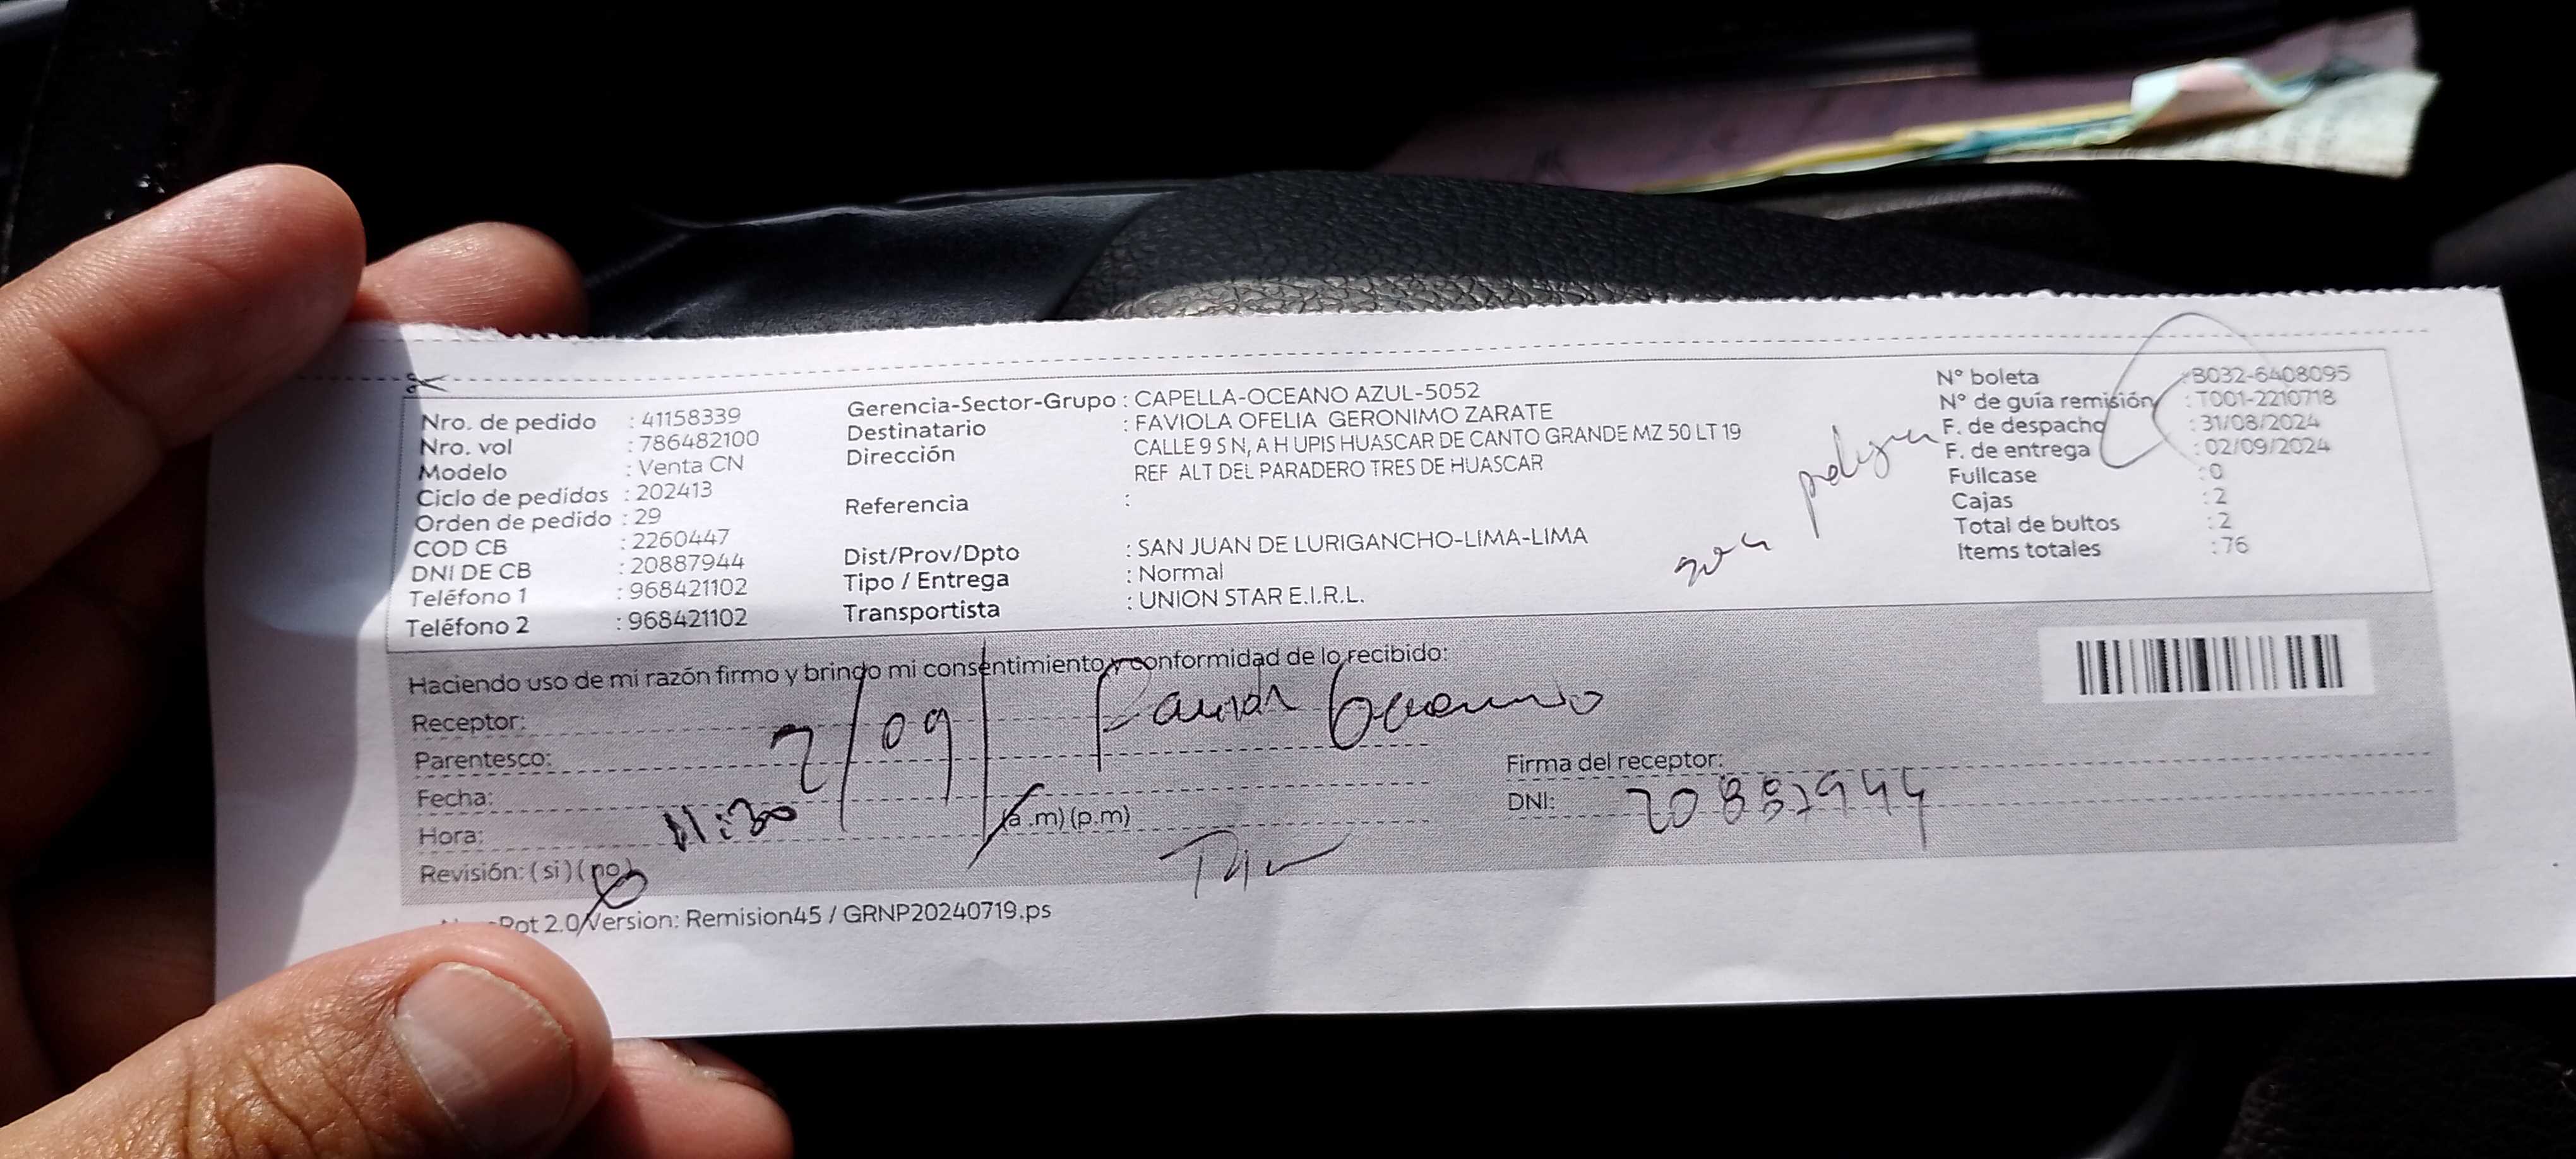 Nro. de pedido : 41158339
Nro. vol : 786482100
Modelo : Venta CN
Ciclo de pedidos : 202413
Orden de pedido : 29
COD CB : 2260447
DNI DE CB : 20887944
Teléfono 1 : 968421102
Teléfono 2 : 968421102
Gerencia-Sector-Grupo : CAPELLA-OCEANO AZUL-5052
Destinatario : FAVIOLA OFELIA GERONIMO ZARATE
Dirección : CALLE 9 S N, A H UPIS HUASCAR DE CANTO GRANDE MZ 50 LT 19
REF ALT DEL PARADERO TRES DE HUASCAR
Referencia :
Dist/Prov/Dpto : SAN JUAN DE LURIGANCHO-LIMA-LIMA
Tipo / Entrega : Normal
Transportista : UNION STAR E.I.R.L.
zona peligrosa
N° boleta : B032-6408095
N° de guía remisión : T001-2210718
F. de despacho : 31/08/2024
F. de entrega : 02/09/2024
Fullcase : 0
Cajas : 2
Total de bultos : 2
Items totales : 76
Haciendo uso de mi razón firmo y brindo mi consentimiento y conformidad de lo recibido:
Receptor:
Parentesco:
Fecha: 2/09/
Hora: 11:30 (a.m) (p.m)
Revisión: (si) (no)
Firma del receptor:
DNI: 20887944
Pot 2.0/Version: Remision45 / GRNP20240719.ps